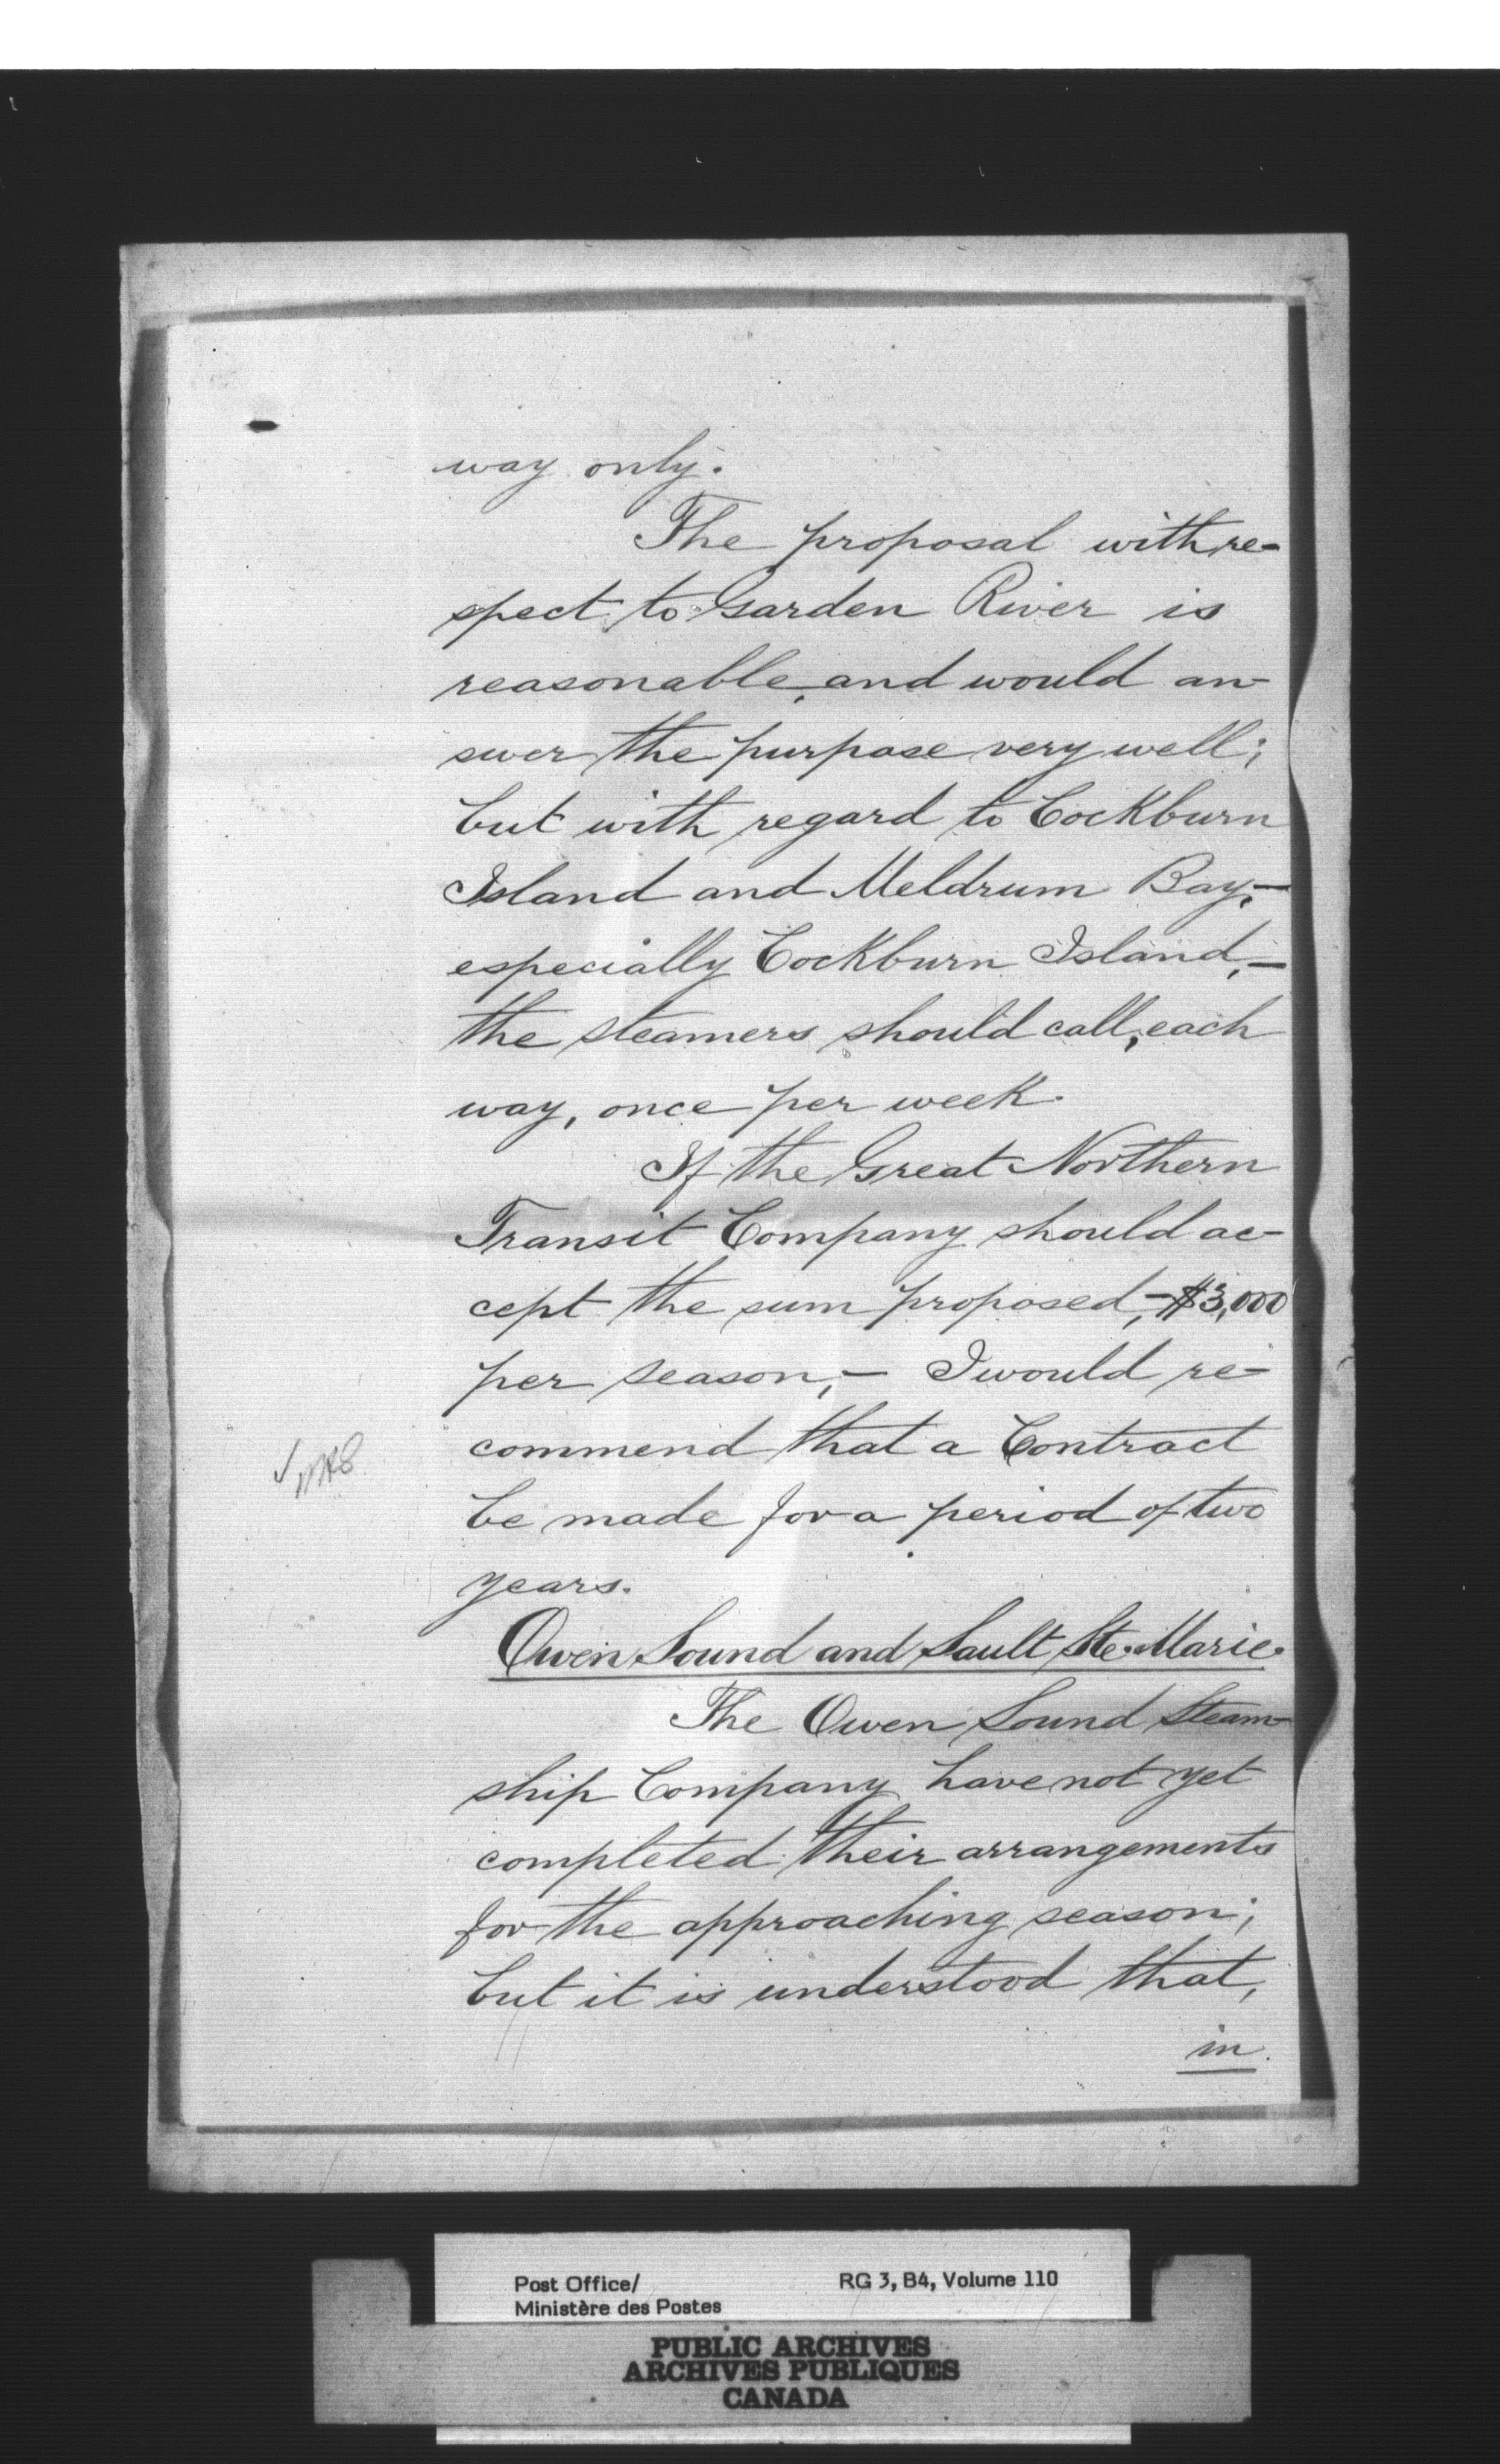 way only.
The proposal with re-
spect to Garden River is
reasonable, and would an-
swer the purpose very well;
but with regard to Cockburn
Island and Meldrum Bay,-
especially Cockburn Island,-
the steamers should call, each
way, once per week.
If the Great Northern
Transit Company should ac-
cept the sum proposed,-$3,000
per season,- I would re-
commend that a Contract
be made for a period of two
years.
Owen Sound and Sault Ste. Marie.
The Owen Sound Steam-
ship Company have not yet
completed their arrangements
for the approaching season;
but it is understood that,
in
Post Office/
Ministère des Postes
RG 3, B4, Volume 110
PUBLIC ARCHIVES
ARCHIVES PUBLIQUES
CANADA